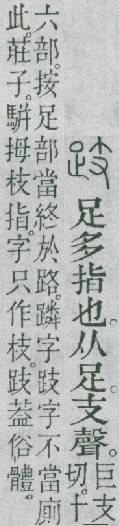 跂 足多指也。从足。支聲。巨支
切。十
六部。按足部當終於路。蹸字跂字不當廁
此。莊子。駢拇枝指。字只作枝。跂葢俗體。